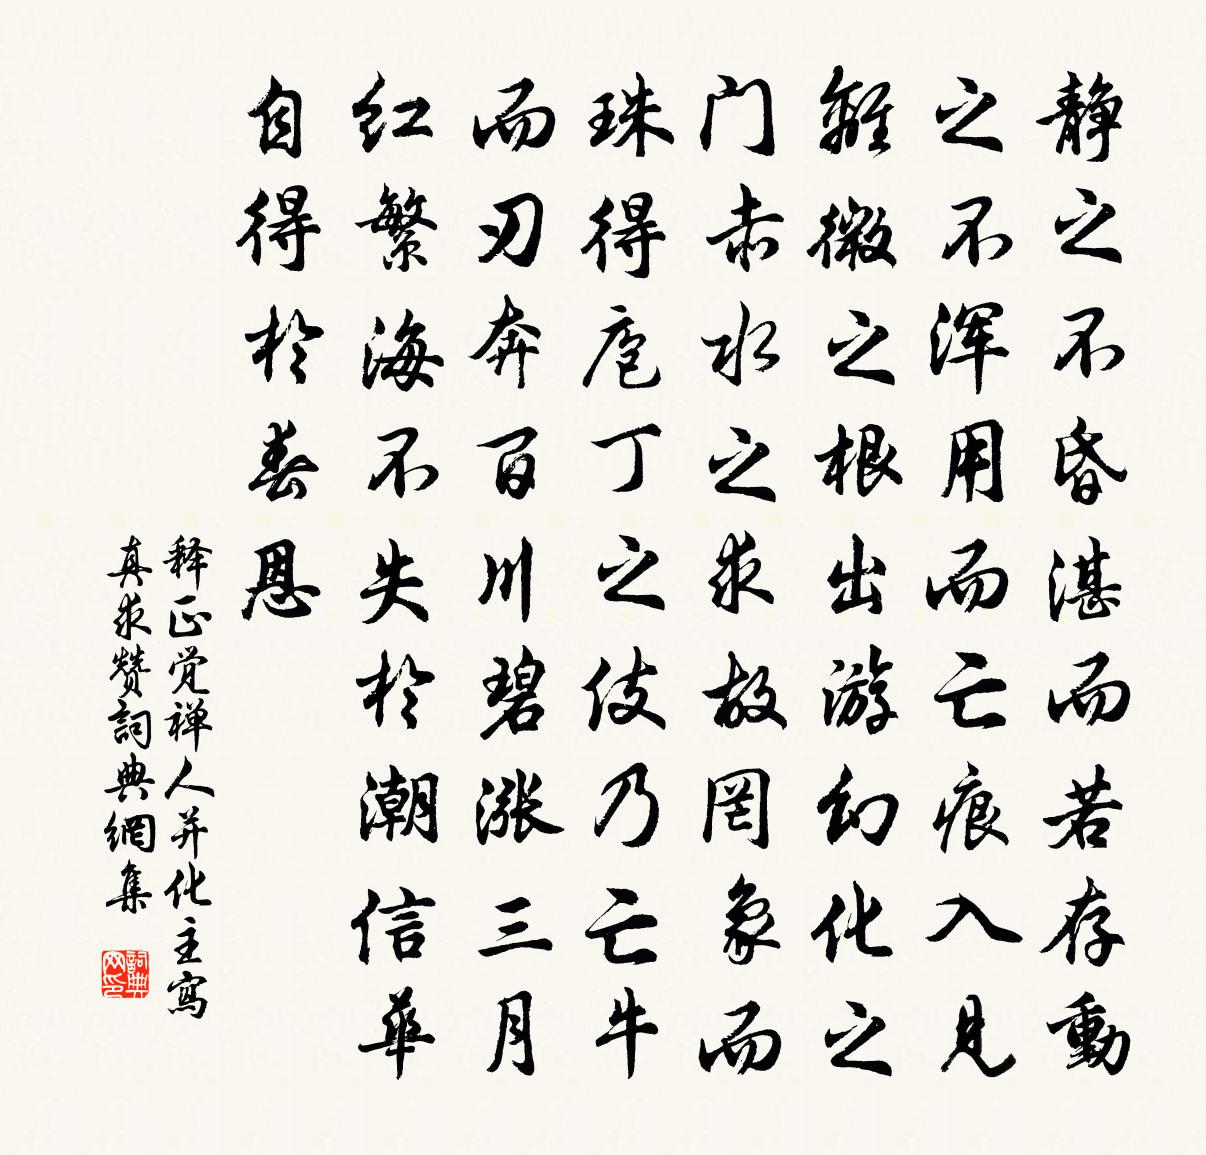 静之不昏湛而若存動
之不浑用而亡痕入見
離微之根出游幻化之
门赤水之求故罔象而
珠得庖丁之伎乃亡牛
而刃奔百川碧漲三月
红繁海不失於潮信華
自得於春恩
释正觉禅人并化主寫
真求赞詞典網集
詞典网印